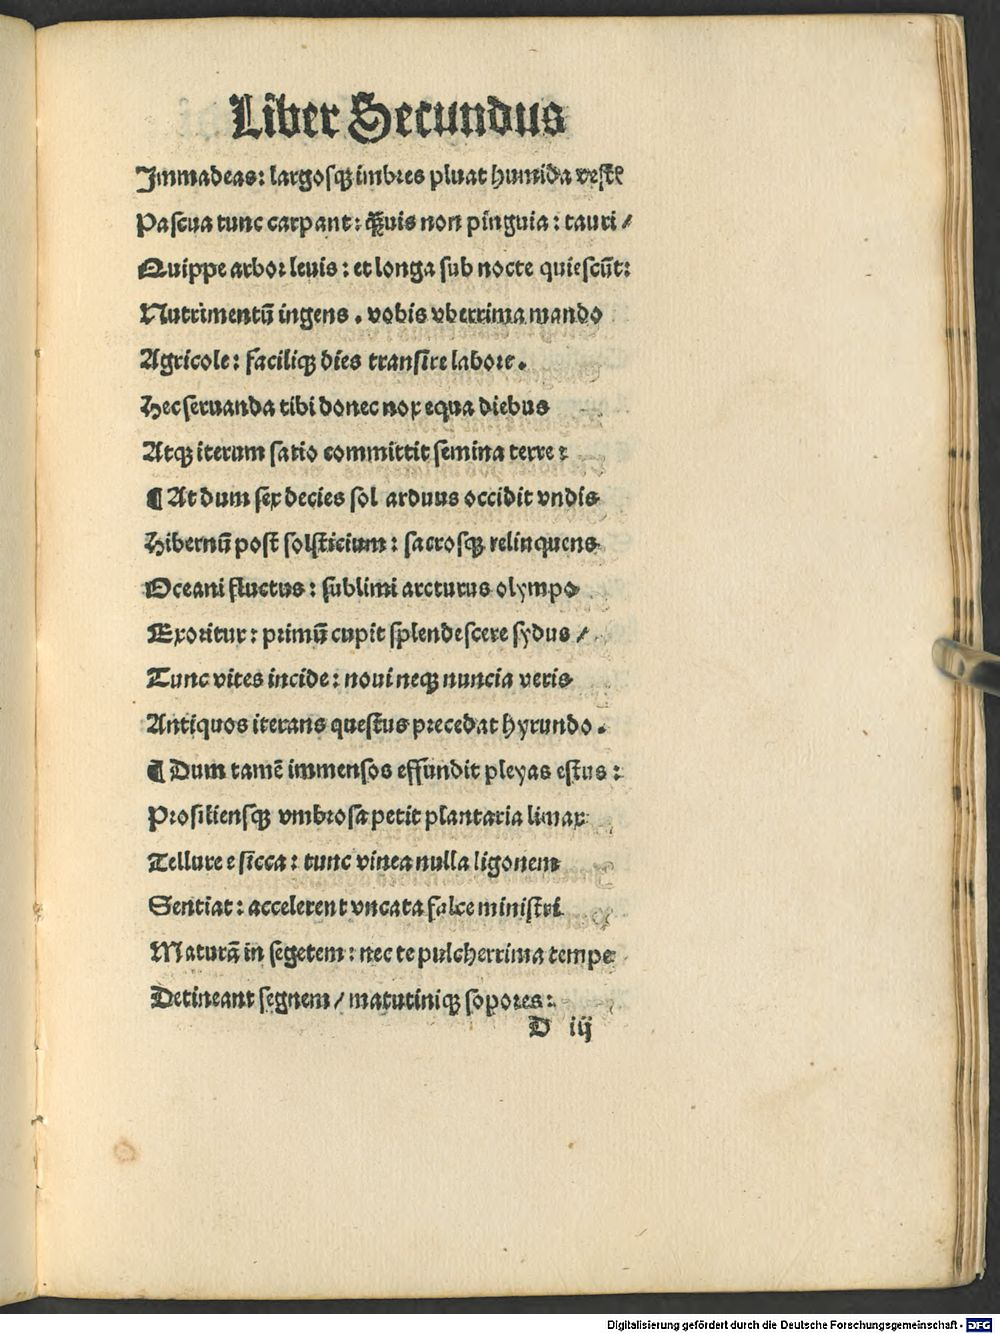 Liber Secundus
Immadeas: largosqꝫ imbres pluat humida vestꝭ
Pascua tunc carpant: qꝫuis non pinguia: tauri /
Quippe arbor leuis: et longa sub nocte quiescūt:
Nutrimentū ingens. vobis vberrima mando
Agricole: faciliqꝫ dies transire labore.
Hec seruanda tibi donec nox equa diebus
Atqꝫ iterum satio committit semina terre:
¶ At dum sex decies sol arduus occidit vndis
Hibernū post solsticium: sacrosqꝫ relinquens
Oceani fluctus: sublimi arcturus olympo
Exoritur: primū cupit splendescere sydus /
Tunc vites incide: noui neqꝫ nuncia veris
Antiquos iterans questus precedat hyrundo.
¶ Dum tamē immensos effundit pleyas estus:
Prosiliensqꝫ vmbrosa petit plantaria limax
Tellure e sicca: tunc vinea nulla ligonem
Sentiat: accelerent vncata falce ministri
Maturā in segetem: nec te pulcherrima tempe
Detineant segnem / matutiniqꝫ sopores:
D iij
Digitalisierung gefördert durch die Deutsche Forschungsgemeinschaft - DFG